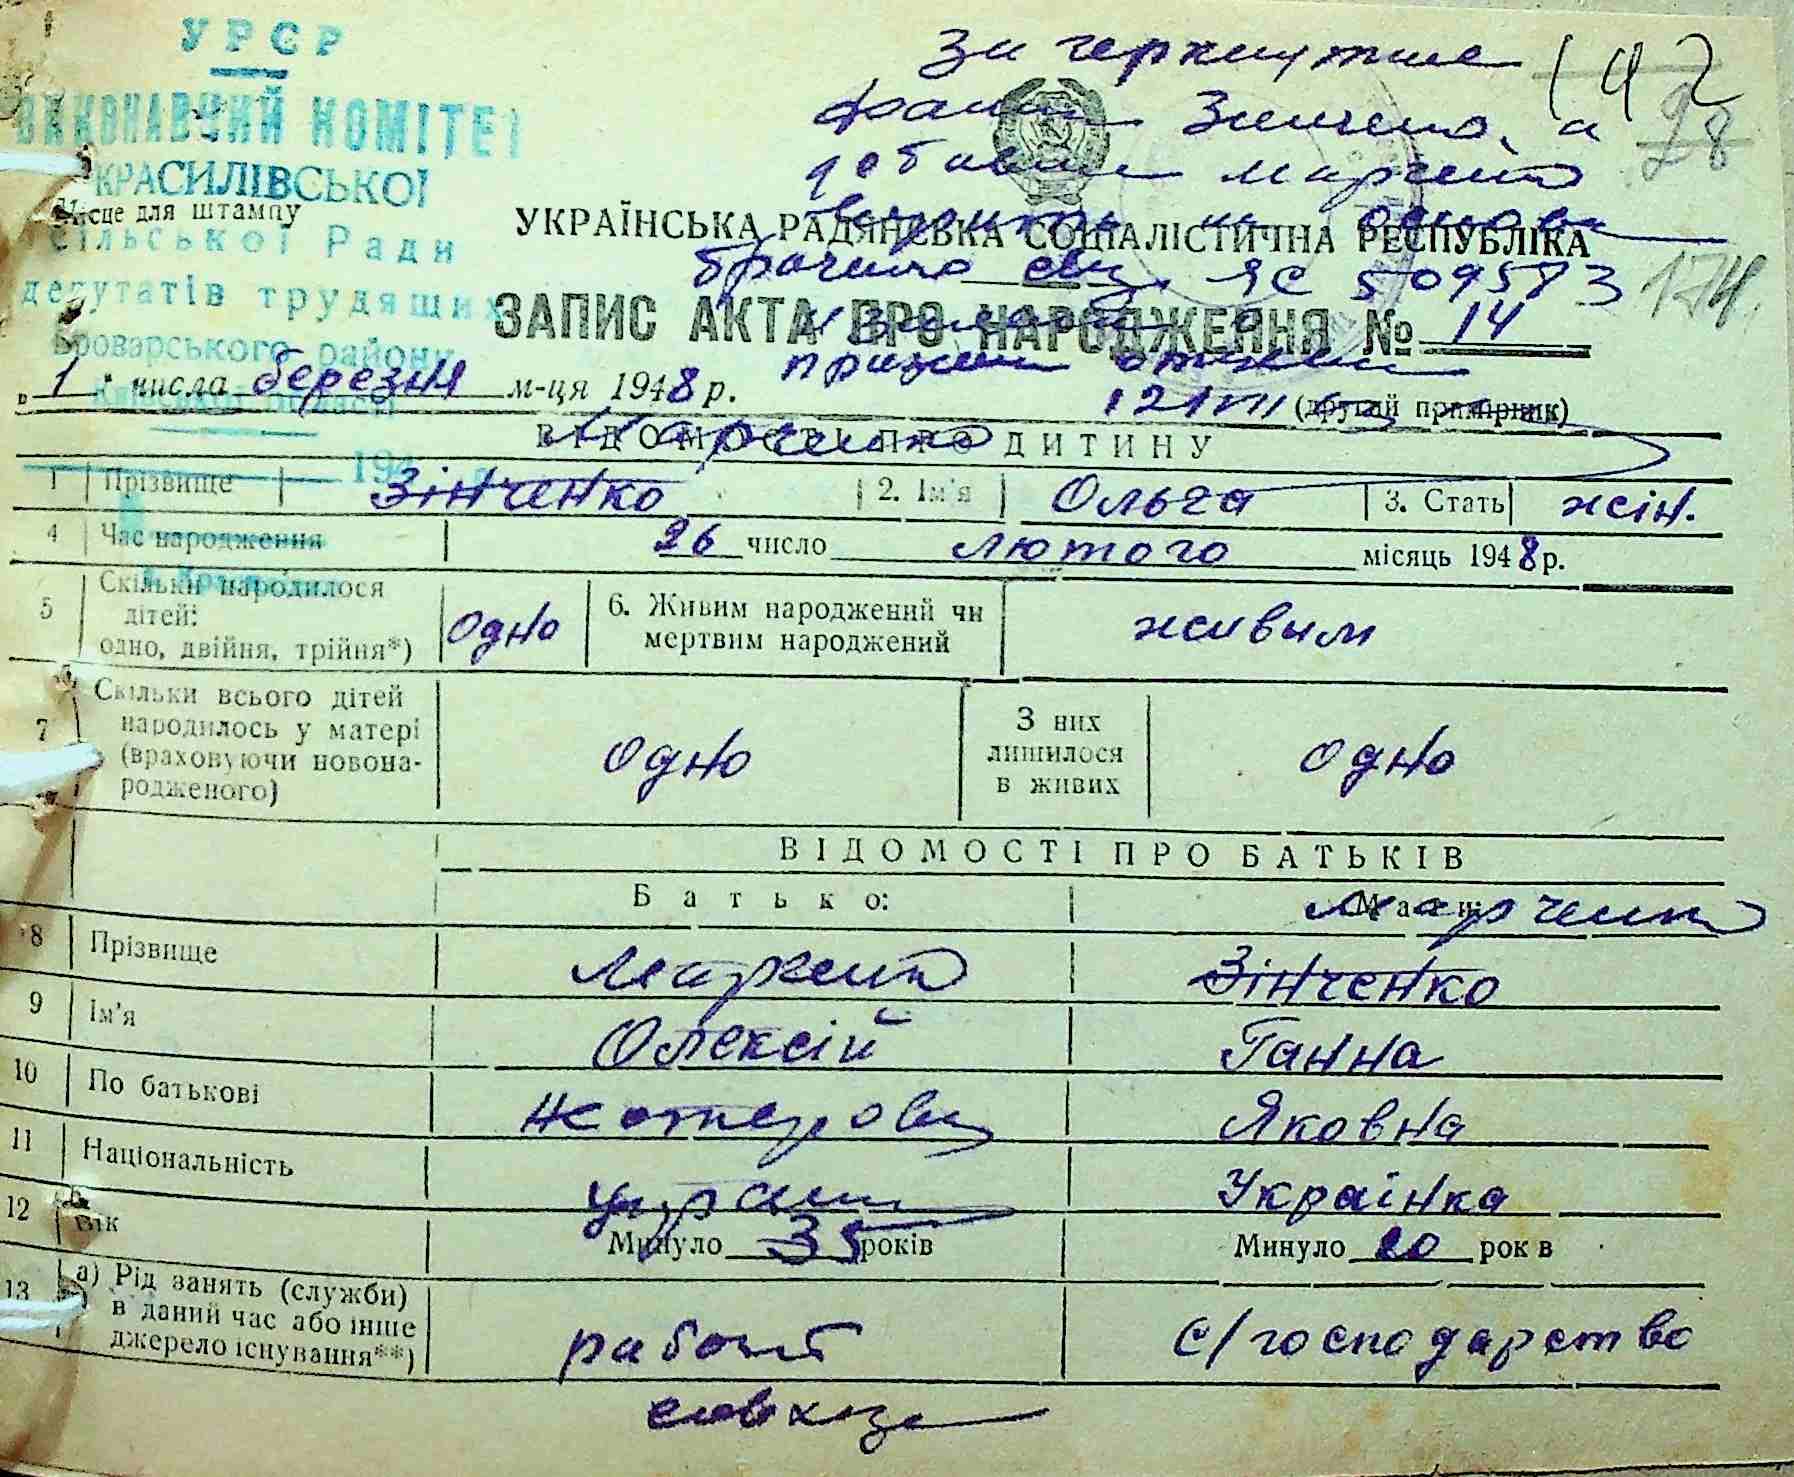 УРСР
ВИКОНАВЧИЙ КОМІТЕТ
КРАСИЛІВСЬКОЇ
Місце для штампу
сільської Ради
депутатів трудящих
Броварського району
Київської області
194
Зачеркнутые 142
28
Зинченко, а
добавлен Марченко
УКРАЇНСЬКА РАДЯНСЬКА СОЦІАЛІСТИЧНА РЕСПУБЛІКА
на основ
ЯС 509573
174.
ЗАПИС АКТА ПРО НАРОДЖЕННЯ № 14
1 числа березня м-ця 1948 р.
(другий примірник)
Марченко
ВІДОМОСТІ ПРО ДИТИНУ
1 Прізвище Зінченко 2. Ім'я Ольга 3. Стать жін.
4 Час народження 26 число лютого місяць 1948 р.
5 Скільки народилося дітей: одно, двійня, трійня*) Одно 6. Живим народжений чи мертвим народжений живым
7 Скільки всього дітей народилось у матері (враховуючи новонародженого) одно З них лишилося в живих одно
ВІДОМОСТІ ПРО БАТЬКІВ
Батько: Мати:
Марченко
8 Прізвище Марченко Зінченко
9 Ім'я Олексій Ганна
10 По батькові Яковна
11 Національність Українка
12 Вік Минуло 35 років Минуло 20 рок в
13 а) Рід занять (служби) в даний час або інше джерело існування**) с/господарство